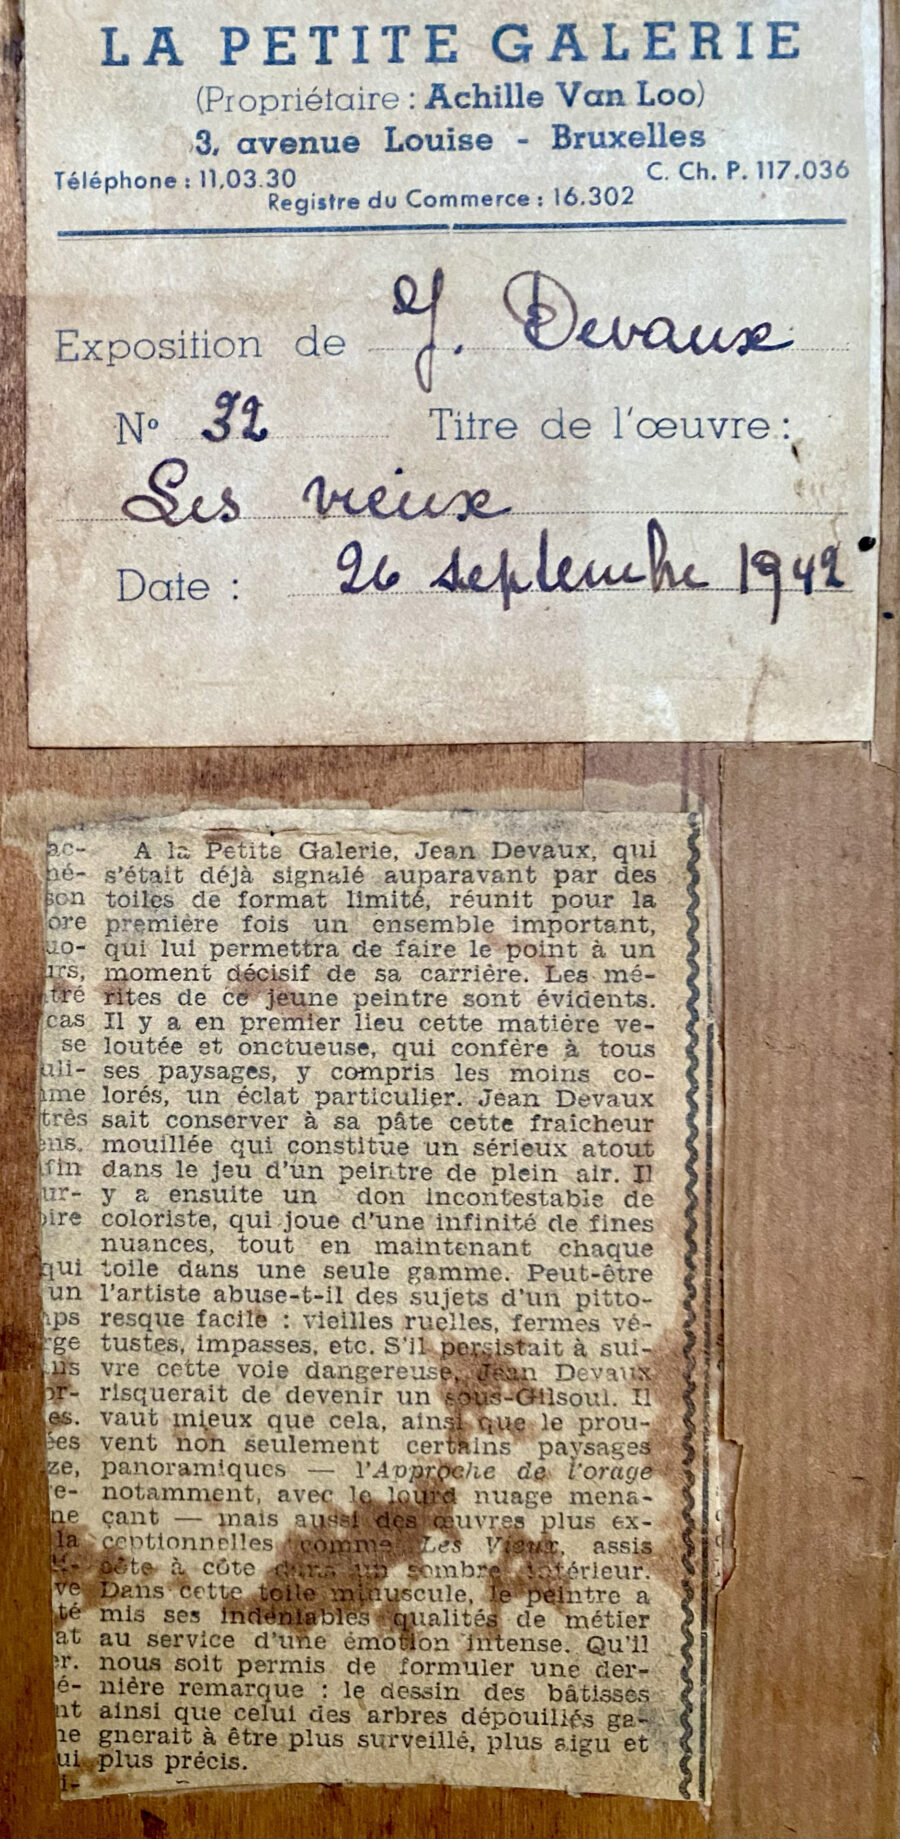 LA PETITE GALERIE
(Propriétaire : Achille Van Loo)
3, avenue Louise - Bruxelles
Téléphone : 11.03.30
C. Ch. P. 117.036
Registre du Commerce : 16.302
Exposition de J. Devaux
Nº 32 Titre de l'œuvre :
Les vieux
Date : 26 septembre 1942
A la Petite Galerie, Jean Devaux, qui
s'était déjà signalé auparavant par des
toiles de format limité, réunit pour la
première fois un ensemble important,
qui lui permettra de faire le point à un
moment décisif de sa carrière. Les mé-
rites de ce jeune peintre sont évidents.
Il y a en premier lieu cette matière ve-
loutée et onctueuse, qui confère à tous
ses paysages, y compris les moins co-
lorés, un éclat particulier. Jean Devaux
sait conserver à sa pâte cette fraîcheur
mouillée qui constitue un sérieux atout
dans le jeu d'un peintre de plein air. Il
y a ensuite un don incontestable de
coloriste, qui joue d'une infinité de fines
nuances, tout en maintenant chaque
toile dans une seule gamme. Peut-être
l'artiste abuse-t-il des sujets d'un pitto-
resque facile : vieilles ruelles, fermes vé-
tustes, impasses, etc. S'il persistait à sui-
vre cette voie dangereuse, Jean Devaux
risquerait de devenir un sous-Gilsoul. Il
vaut mieux que cela, ainsi que le prou-
vent non seulement certains paysages
panoramiques — l'Approche de l'orage
notamment, avec le lourd nuage mena-
çant — mais aussi des œuvres plus ex-
ceptionnelles comme Les Vieux, assis
côte à côte dans un sombre intérieur.
Dans cette toile minuscule, le peintre a
mis ses indéniables qualités de métier
au service d'une émotion intense. Qu'il
nous soit permis de formuler une der-
nière remarque : le dessin des bâtisses
ainsi que celui des arbres dépouillés ga-
gnerait à être plus surveillé, plus aigu et
plus précis.